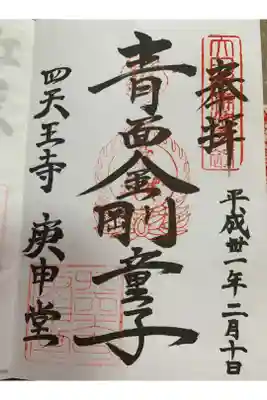 奉拝
平成卅一年二月十日
青面金剛童子
四天王寺
庚申堂